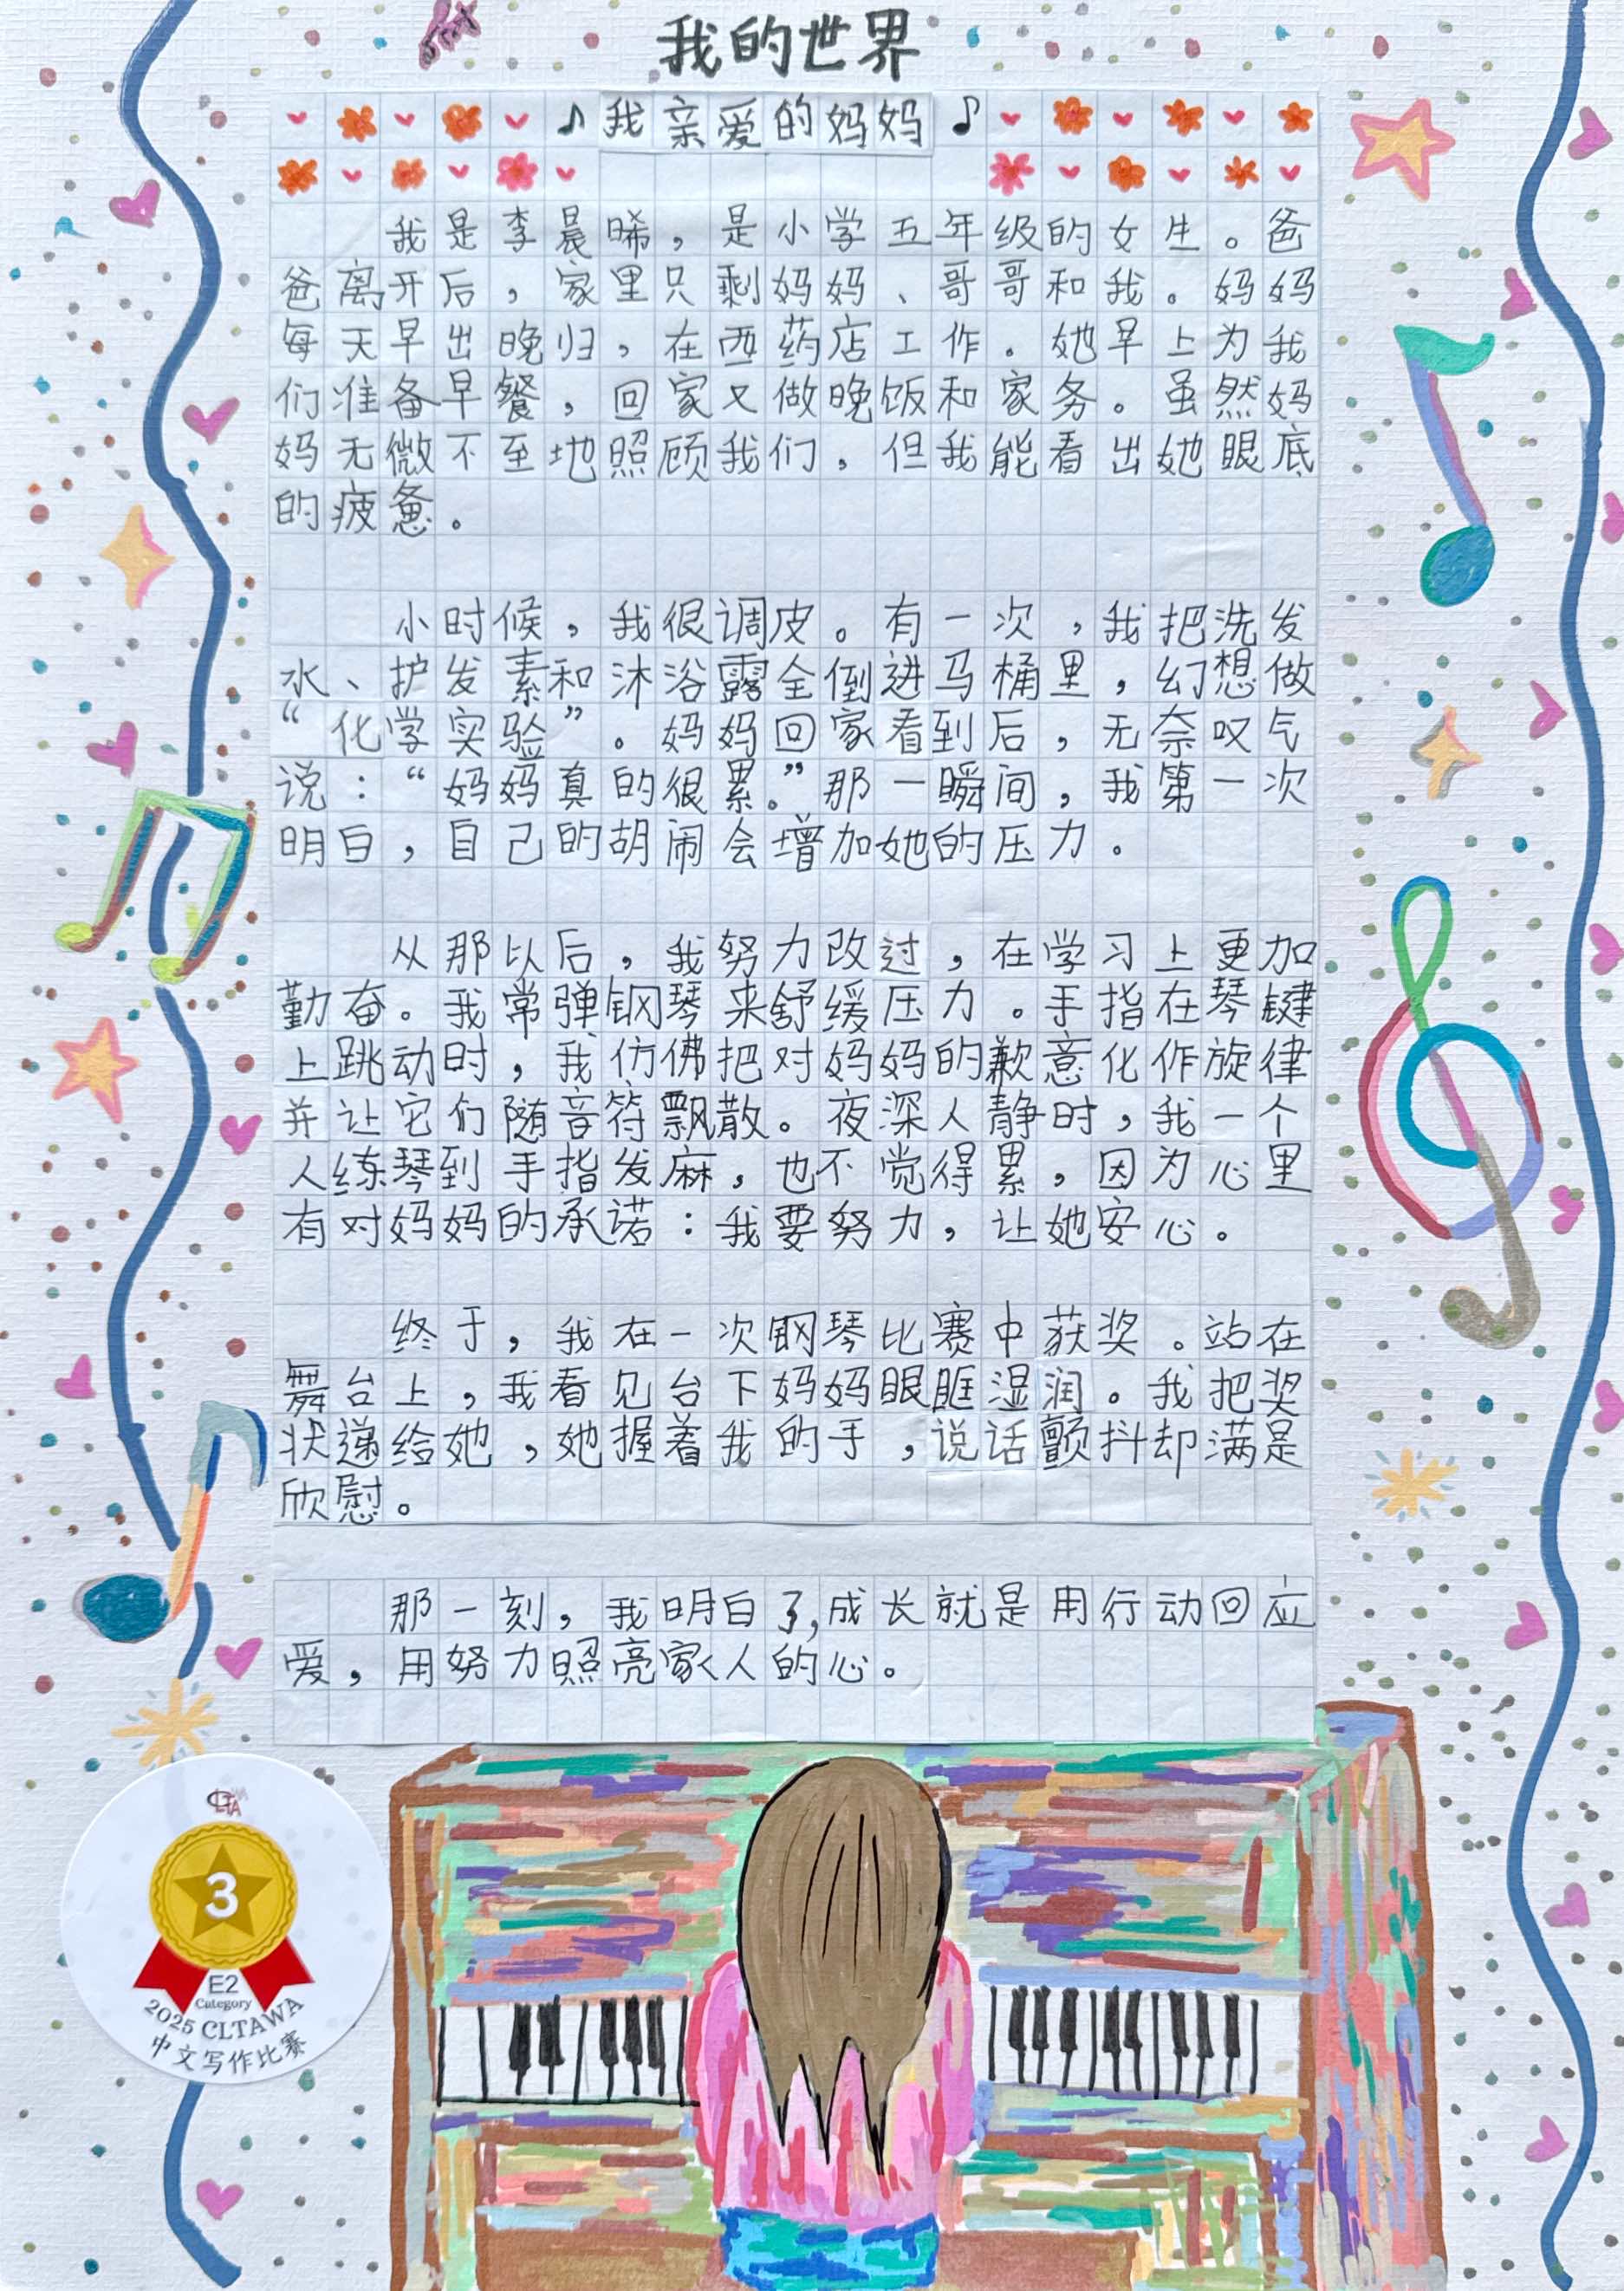 我的世界
我亲爱的妈妈
我是李晨晞，是小学五年级的女生。爸
爸离开后，家里只剩妈妈、哥哥和我。妈妈
每天早出晚归，在西药店工作。她早上为我
们准备早餐，回家又做晚饭和家务。虽然妈
妈无微不至地照顾我们，但我能看出她眼底
的疲惫。
小时候，我很调皮。有一次，我把洗发
水、护发素和沐浴露全倒进马桶里，幻想做
“化学实验”。妈妈回家看到后，无奈叹气
说：“妈妈真的很累。”那一瞬间，我第一次
明白，自己的胡闹会增加她的压力。
从那以后，我努力改过，在学习上更加
勤奋。我常弹钢琴来舒缓压力。手指在琴键
上跳动时，我仿佛把对妈妈的歉意化作旋律
并让它们随音符飘散。夜深人静时，我一个
人练琴到手指发麻，也不觉得累，因为心里
有对妈妈的承诺：我要努力，让她安心。
终于，我在一次钢琴比赛中获奖。站在
舞台上，我看见台下妈妈眼眶湿润。我把奖
状递给她，她握着我的手，说话颤抖却满是
欣慰。
那一刻，我明白了，成长就是用行动回应
爱，用努力照亮家人的心。
CLTAWA
3
E2
Category
2025 CLTAWA
中文写作比赛